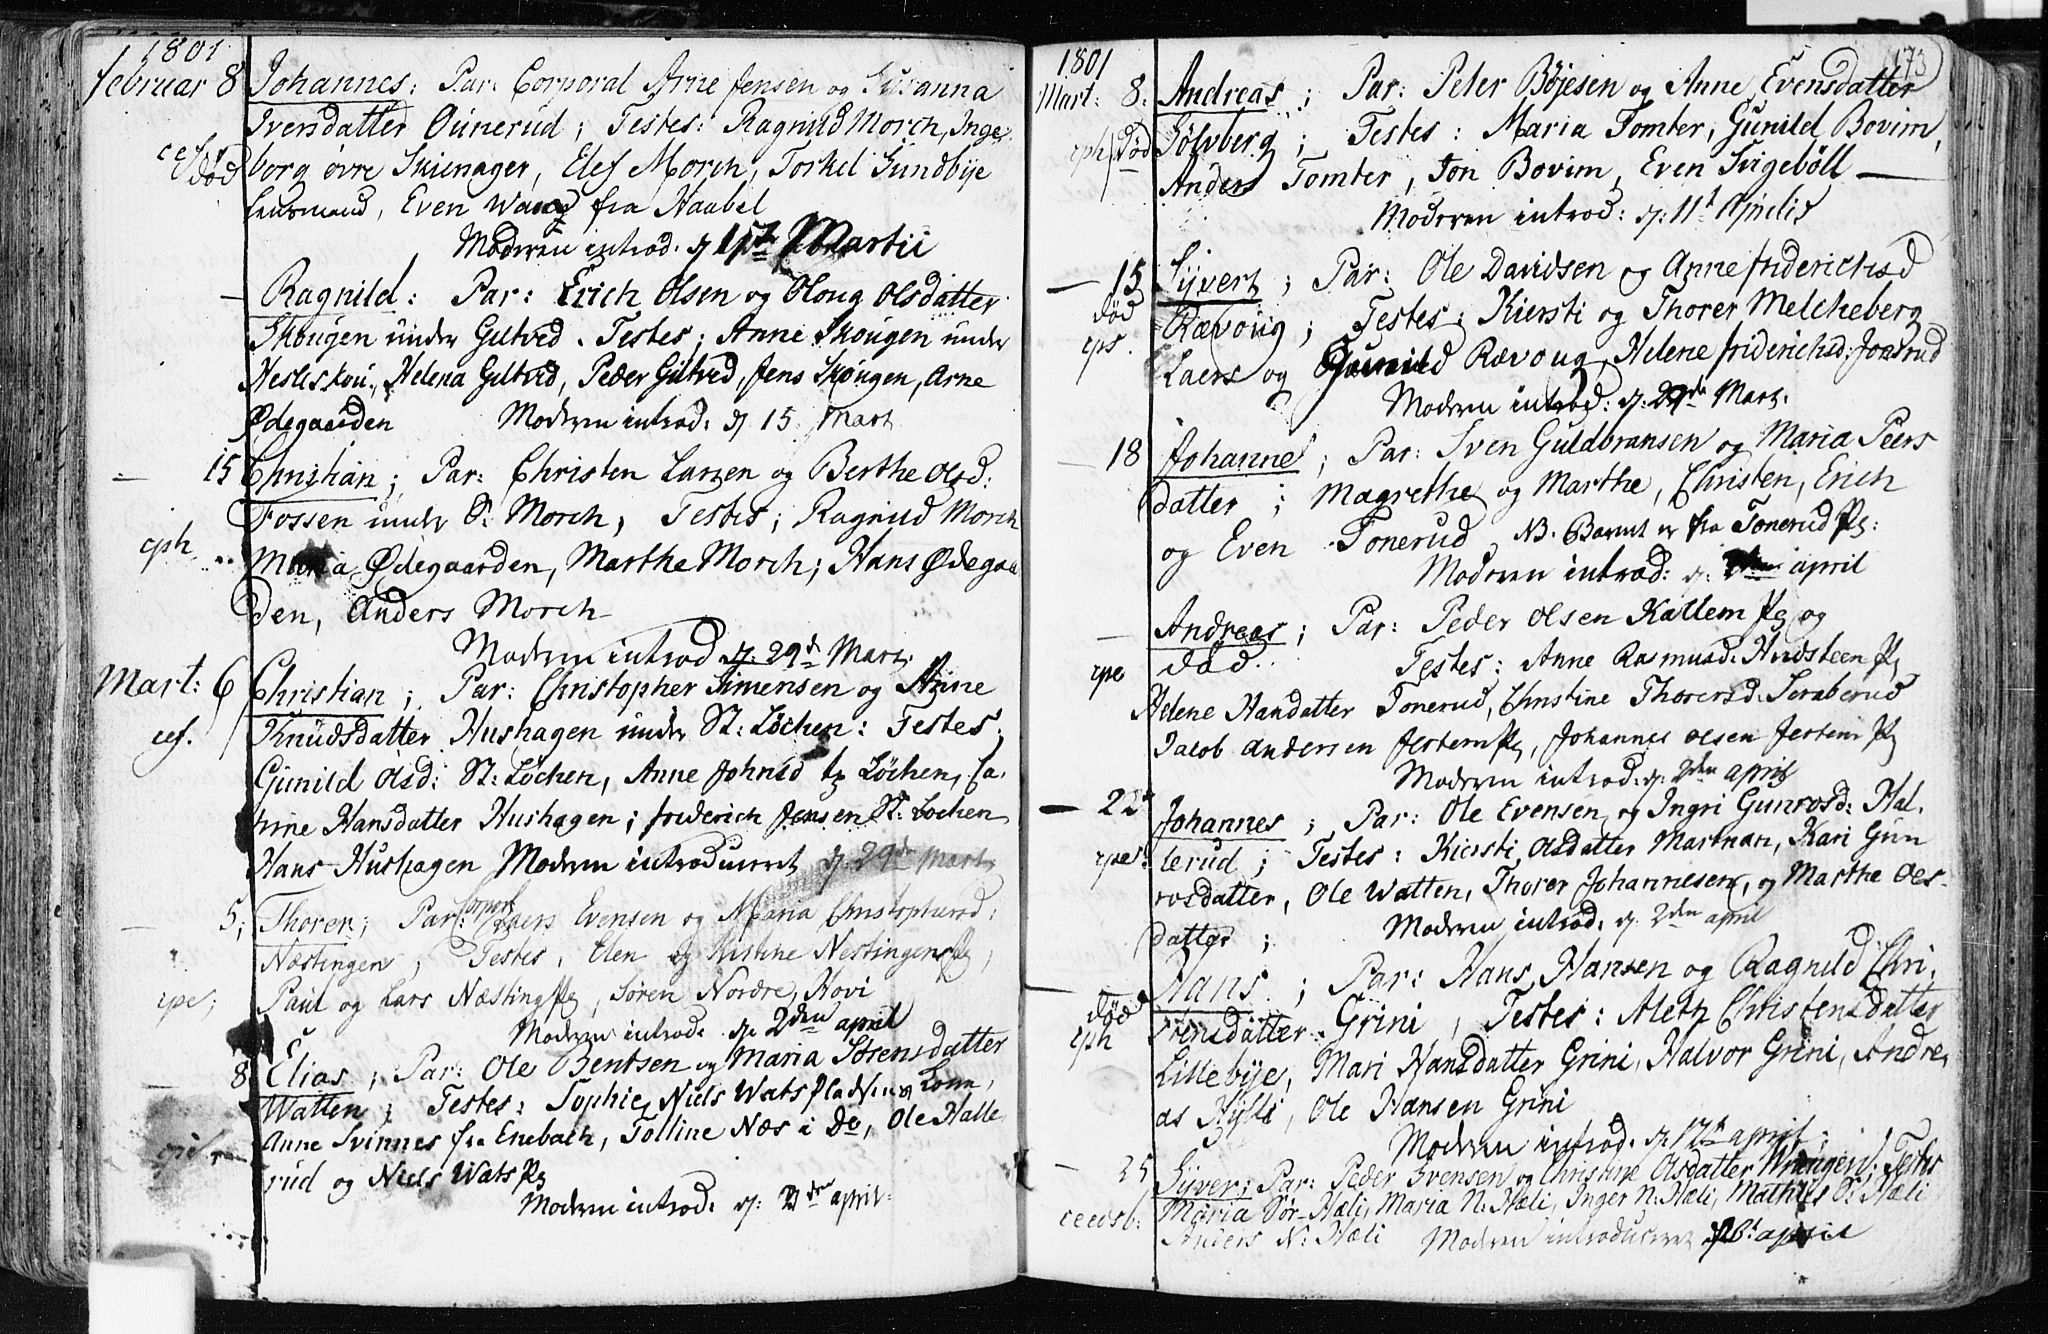 1801
Februar 8 Johannes: Par: Corporal Arne Jensen og Susanna
Iversdatter Ounerud; Testes: Ragnild Morch, Inge
død borg øvre Skienager, Elef Morch, Torkel Sundbÿe
Lensmand, Even Waag fra Haabel
Moderen introd. d. Martii
— Ragnild: Par: Erich Olsen og Oloug Olsdatter
Skougen under Giltved. Testes; Anne Skougen under
Hesleskou, Helena Giltved, Peder Giltved, Jens Skougen, Arne
Ødegaarden Moderen introd: d 15 Mart
— 15 Christian; Par: Christen Larsen og Berthe Olsd:
Fossen under S: Morch, Testes; Ragnild Morch
cph Maria Ødegaarden, Marthe Morch; Hans Ødegaa
den, Anders Morch
Moderen introd d: 29d Mart:
Mart: 6 Christian; Par: Christopher Simensen og Anne
cef. Knudsdatter Hushagen under St: Løchen: Testes,
Gunild Olsd: St: Løchen, Anne Johnsd Løchen, Ca-
rine Hansdatter Hushagen; Friderich Jensen St: Lochen
Hans Hushagen Moderen introduceret d. 29de Mart
— 5; Thorer; Par: Corpor: Laers Evensen og Maria Christophersd:
Næstingen, Testes, Elen og Kistine Nestingen Pg,
cpe; Paul og Lars Næsting Pg, Søren Nordre Hovi
Moderen introd: d. 2den april
— 8 Elias; Par: Ole Bentsen og Maria Sørensdatter
Watten; Testes: Sophie, Niels Wats
Anne Svinnes fra Enebach, Tolline Næs i Do, Ole Halle
rud og Niels Wats Pg
Moderen introd: d: 2den april:
173
1801
Mart: 8. Andreas; Par: Peter Böjesen og Anne Evensdatter
cph død Sölvberg; Testes: Maria Tomter, Gunild Bovim,
Anders Tomter, Jon Bovim, Even Svigeböll —
Moderen introd: d: 11t Aprilis
— 15 Sÿvert; Par: Ole Davidsen og Anne Friderichsd
død Rævoug; Testes: Kiersti og Thorer Melcheberg
cps. Laers og Gunild Rævoug, Helene Friderichsd: Jonsrud
Moderen introd: d: 29de Mart.
— 18 Johanne; Par: Sven Guldbransen og Maria Peers
datter; Magrethe og Marthe, Christen, Erich
og Even Tonerud NB. Barnet er fra Tonerud Pg:
Moderen introd: d: april
— Andreas; Par: Peder Olsen Kattem Pg og
cpe død. Testes: Anne Rasmusd: Hudsteen Pg
Helene Handatter Tonerud, Christine Thorersd: Scraberud
Jacob Andersen Jestem Pg, Johannes Olsen Jestem Pg
Moderen introd: d: 2den april
— 22 Johannes; Par: Ole Evensen og Ingri Gunrosd: Hal-
cpe: lerud; Testes: Kiersti Olsdatter Martnan, Kari Gun
rosdatter, Ole Watten, Thorer Johannesen, og Marthe Oels-
datter; Moderen introd: d. 2den april
— Hans; Par: Hans Hansen og Ragnild Chri-
død stensdatter Grini, Testes: Aleth Christensdatter
cph Lillebÿe, Mari Hansdatter Grini, Halvor Grini, Andre-
as Hÿlli, Ole Hansen Grini
Moderen introd. d. 12t april;
— 25 Sÿver; Par: Peder Svensen og Christine Olsdatter Wrangen: Testes
Maria Sör-Hæli, Maria N: Hæli, Inger N: Hæli, Mathies S: Hæli
Anders N: Hæli Moderen introduceret april